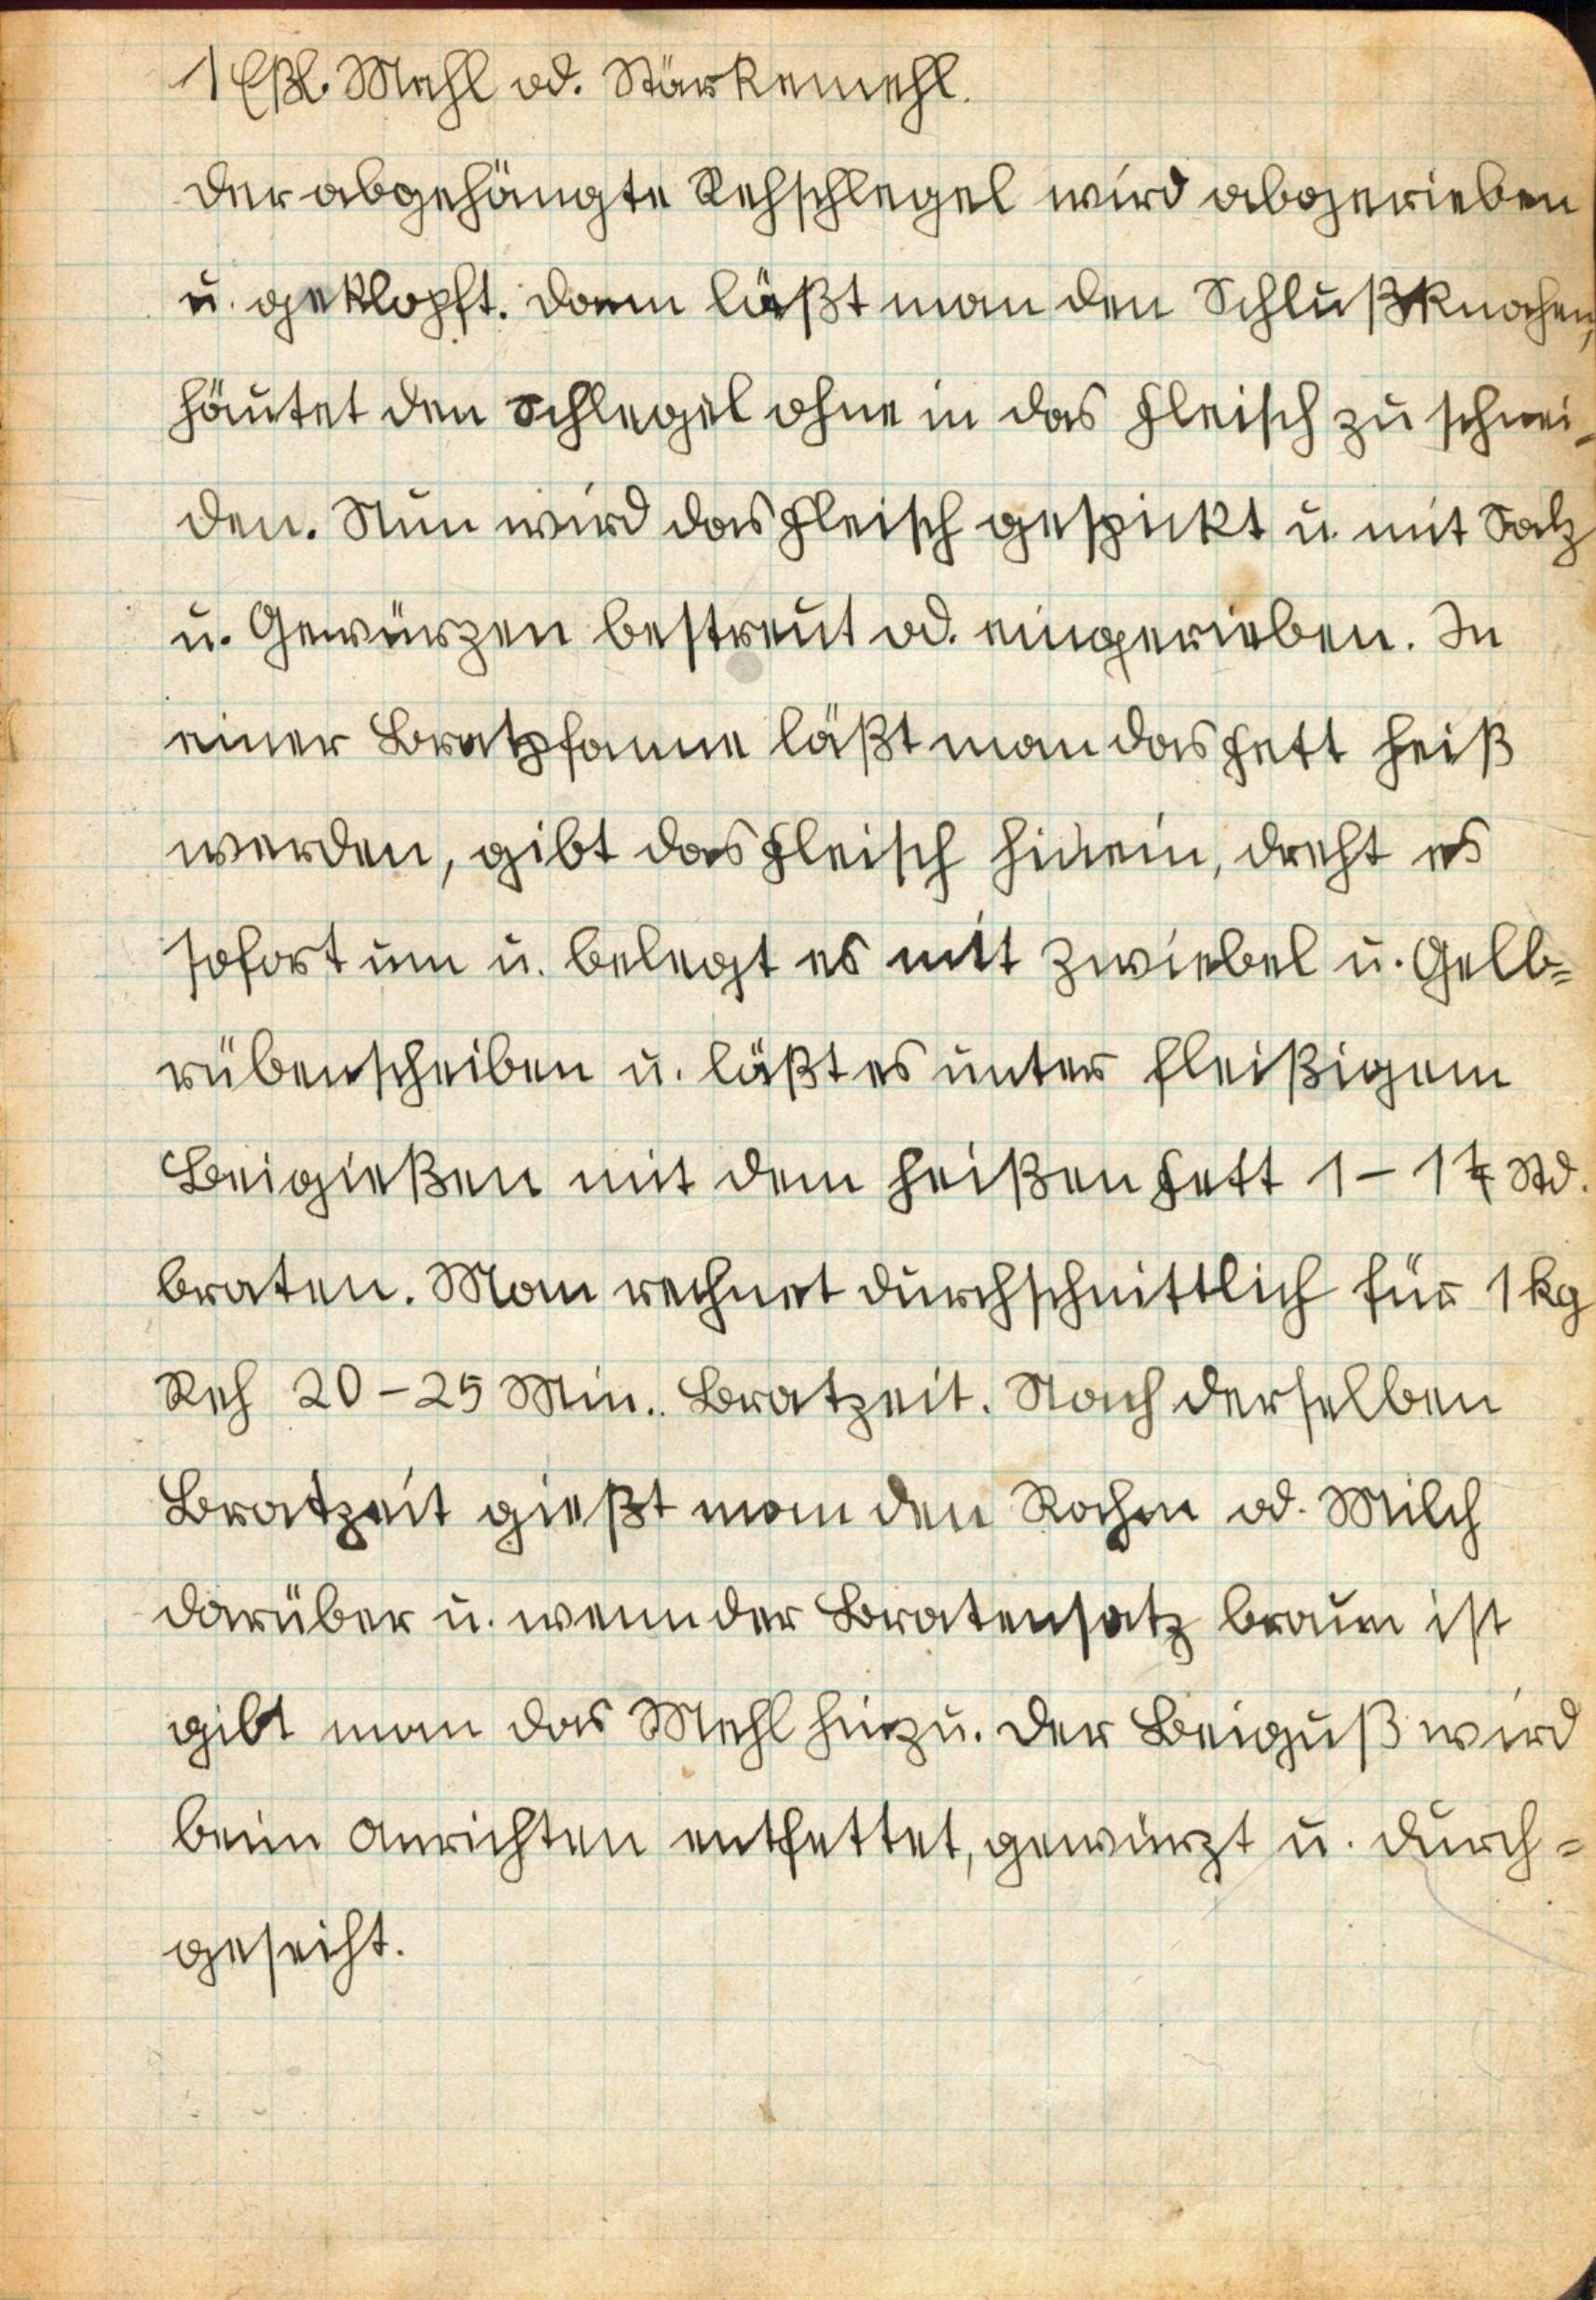 1 Eßl. Mehl od. Stärkemehl.
Der abgehängte Rehschlegel wird abgerieben
u. geklopft. Dann läßt man den Schlußknochen,
häutet den Schlegel ohne in das Fleisch zu schnei-
den. Nun wird das Fleisch gespickt u. mit Salz
u. Gewürzen bestreut od. eingerieben. In
einer Bratpfanne läßt man das Fett heiß
werden, gibt das Fleisch hinein, dreht es
sofort um u. belegt es mit Zwiebel u. Gelb=
rübenscheiben u. läßt es unter fleißigem
Beigießen mit dem heißen Fett 1 - 1 Std.
braten. Man rechnet durchschnittlich für 1 kg
Reh 20 - 25 Min. Bratzeit. Nach derselben
Bratzeit gießt man den Rahm od. Milch
darüber u. wenn der Bratensatz braun ist
gibt man das Mehl hinzu. Der Beiguß wird
beim Anrichten entfettet, gewürzt u. durch=
geseiht.